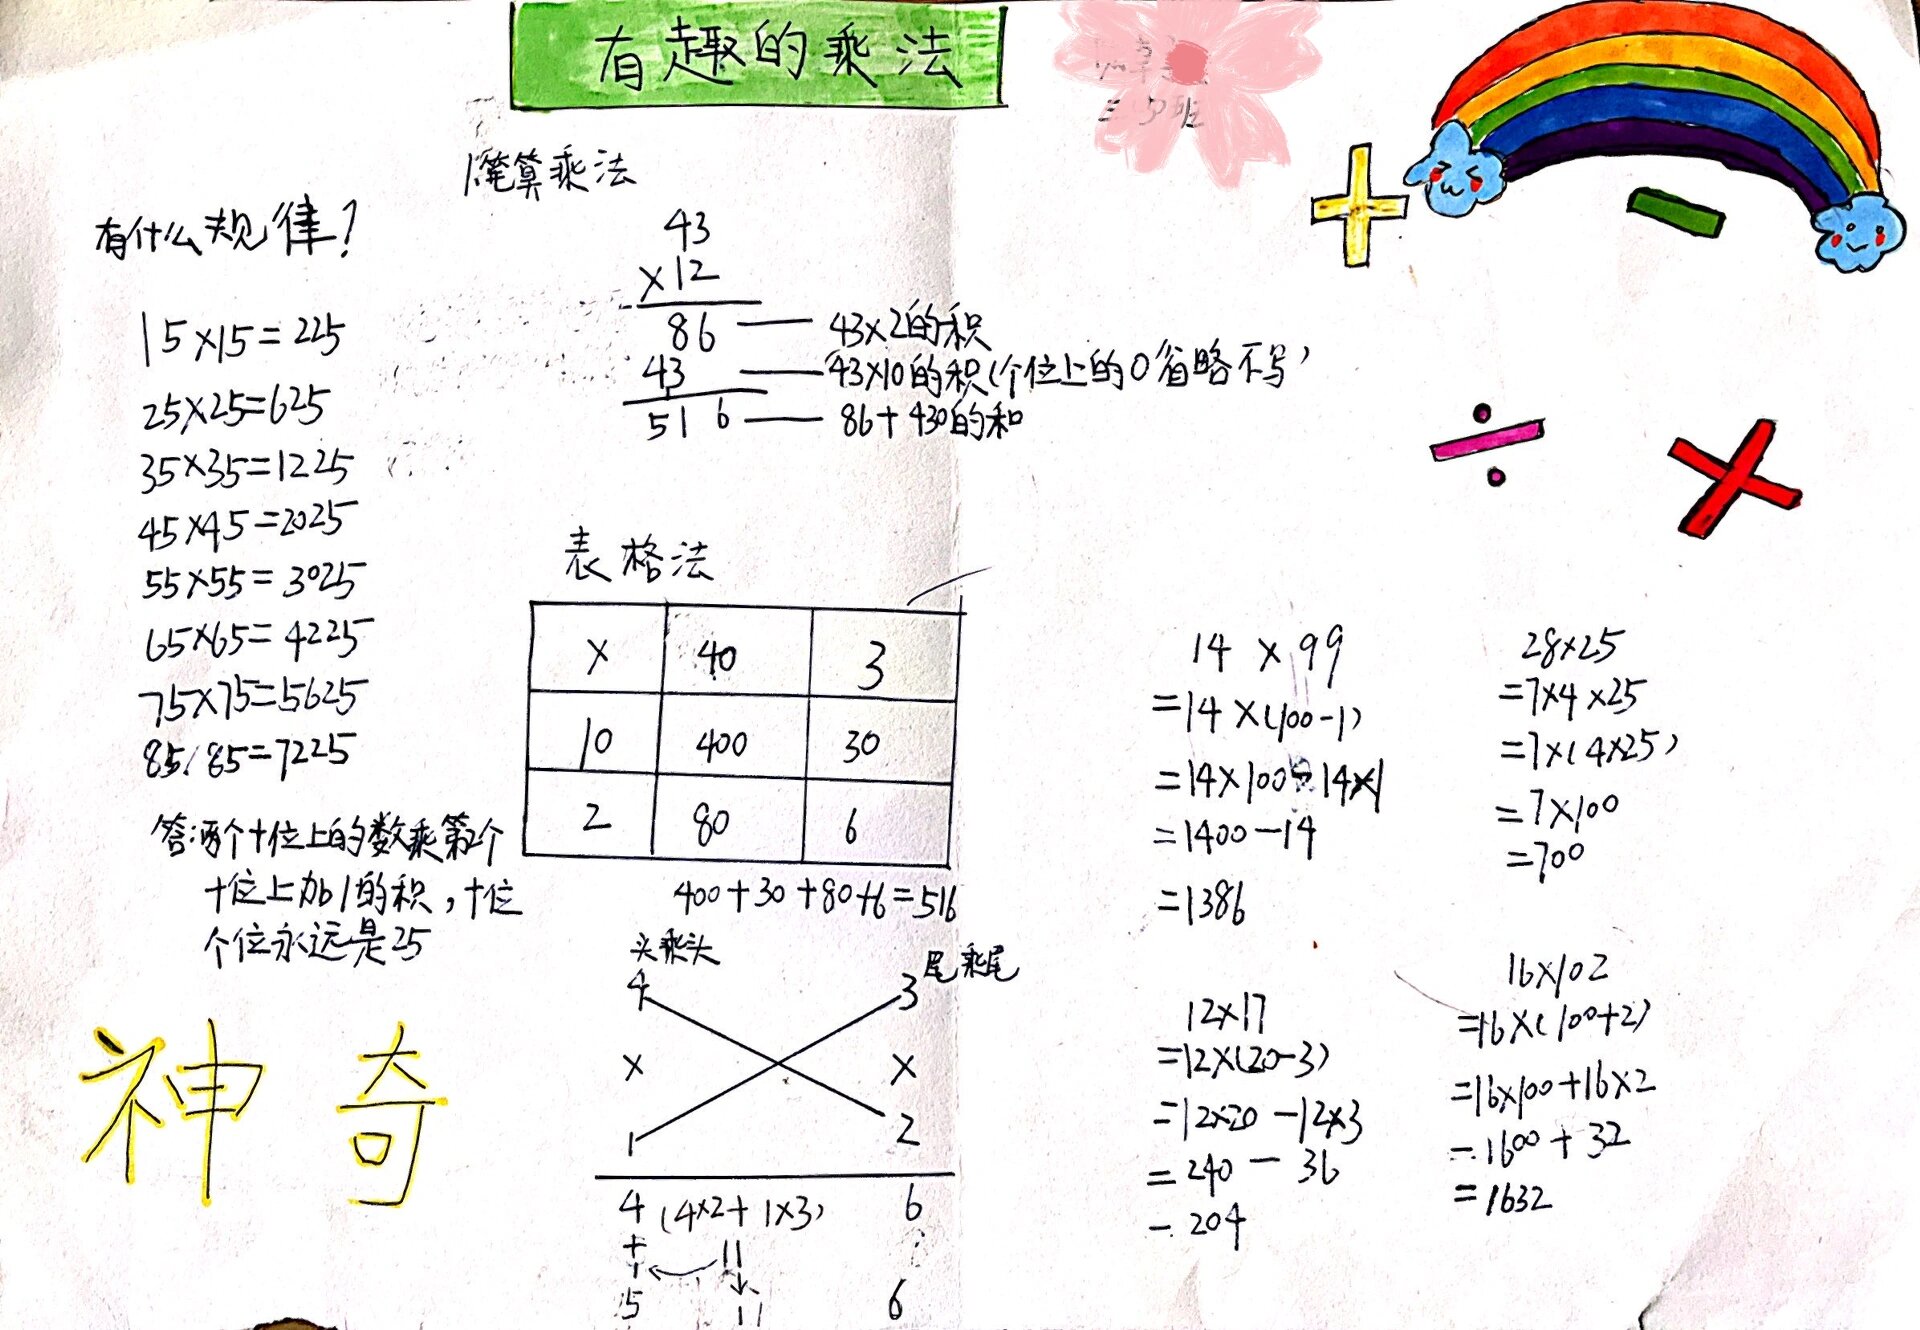 有趣的乘法
三 班
有什么规律?
15×15=225
25×25=625
35×35=1225
45×45=2025
55×55=3025
65×65=4225
75×75=5625
85×85=7225
答:两个十位上的数乘第2个
十位上加1的积,十位
个位永远是25
神奇
1.笔算乘法
43
×12
86 —— 43×2的积
43 —— 43×10的积(个位上的0省略不写)
516 —— 86+430的和
表格法
× 40 3
10 400 30
2 80 6
400+30+80+6=516
头乘头 尾乘尾
4 3
× ×
1 2
4 (4×2+1×3) 6
+ 11
1
5 1 6
14×99
=14×(100-1)
=14×100-14×1
=1400-14
=1386
28×25
=7×4×25
=7×(4×25)
=7×100
=700
12×17
=12×(20-3)
=12×20-12×3
=240-36
=204
16×102
=16×(100+2)
=16×100+16×2
=1600+32
=1632
+
-
÷
×